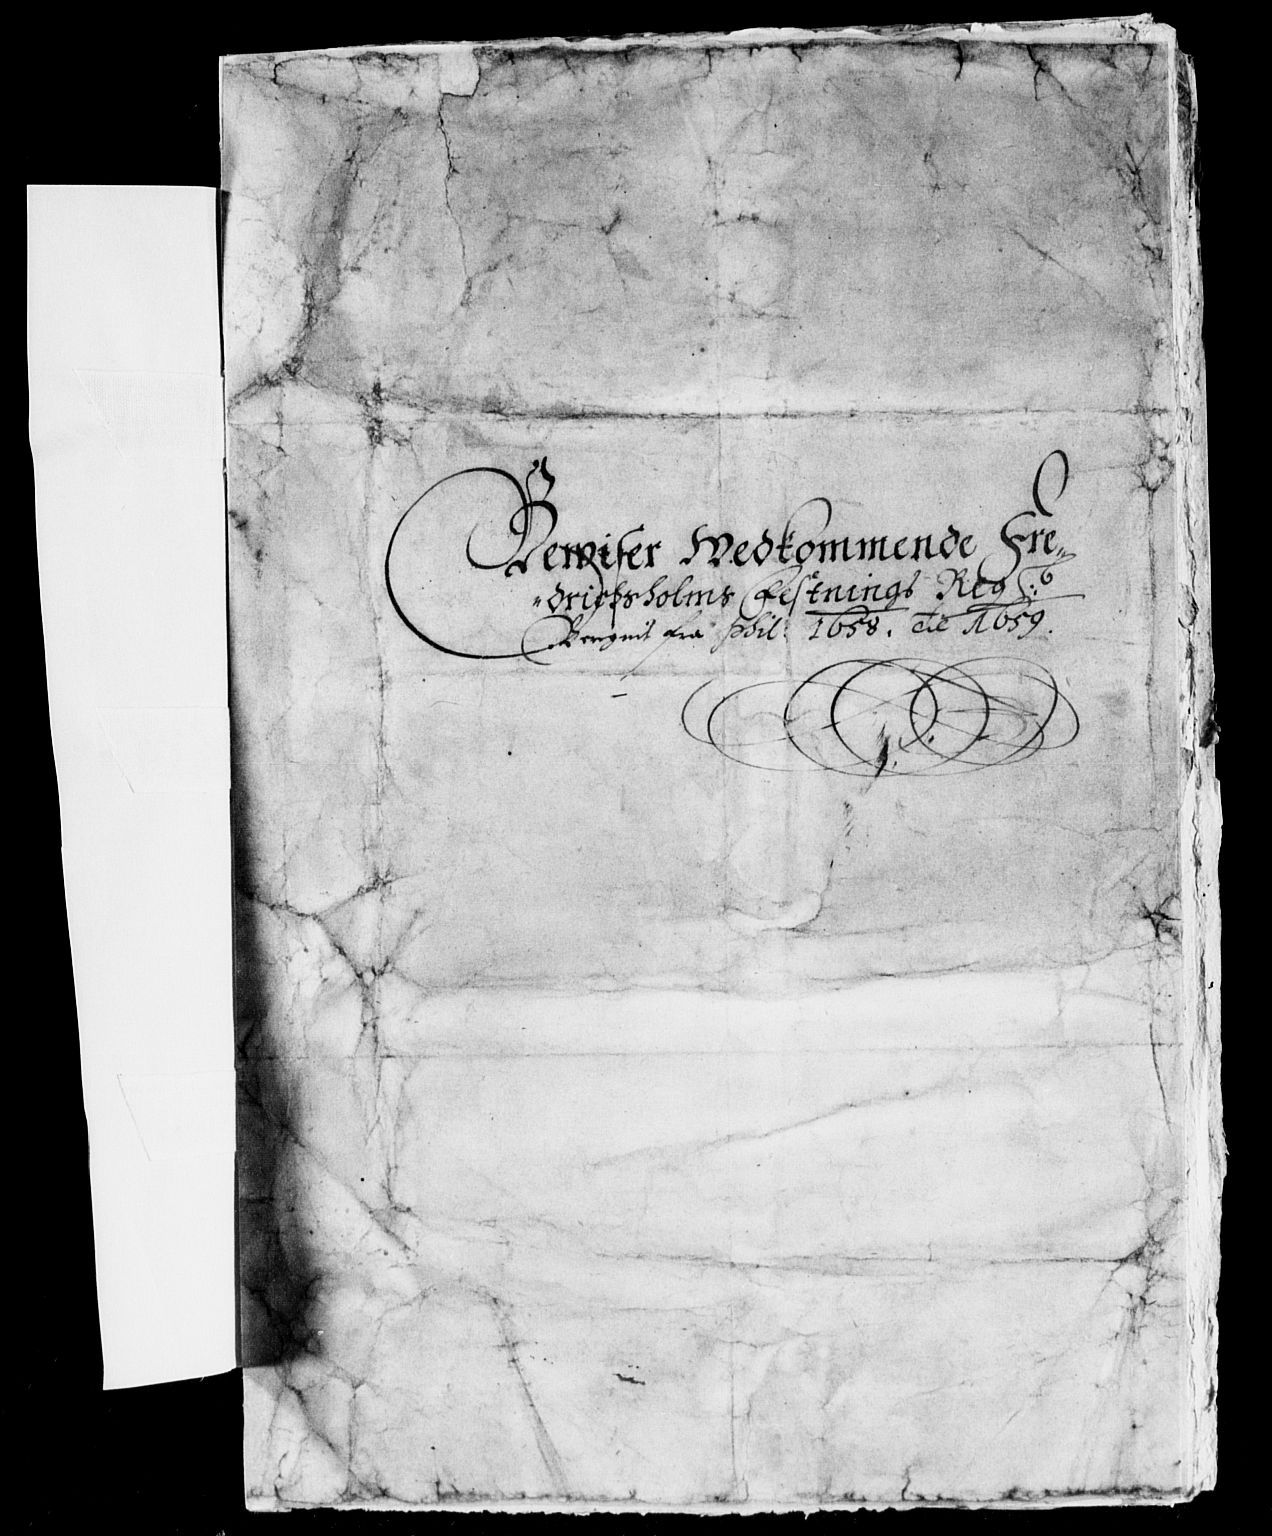 Bewiser Wedkommende Fre„
„drichsholms Festnings Regs:
Beregnit fra Phil: 1658. til 1659.